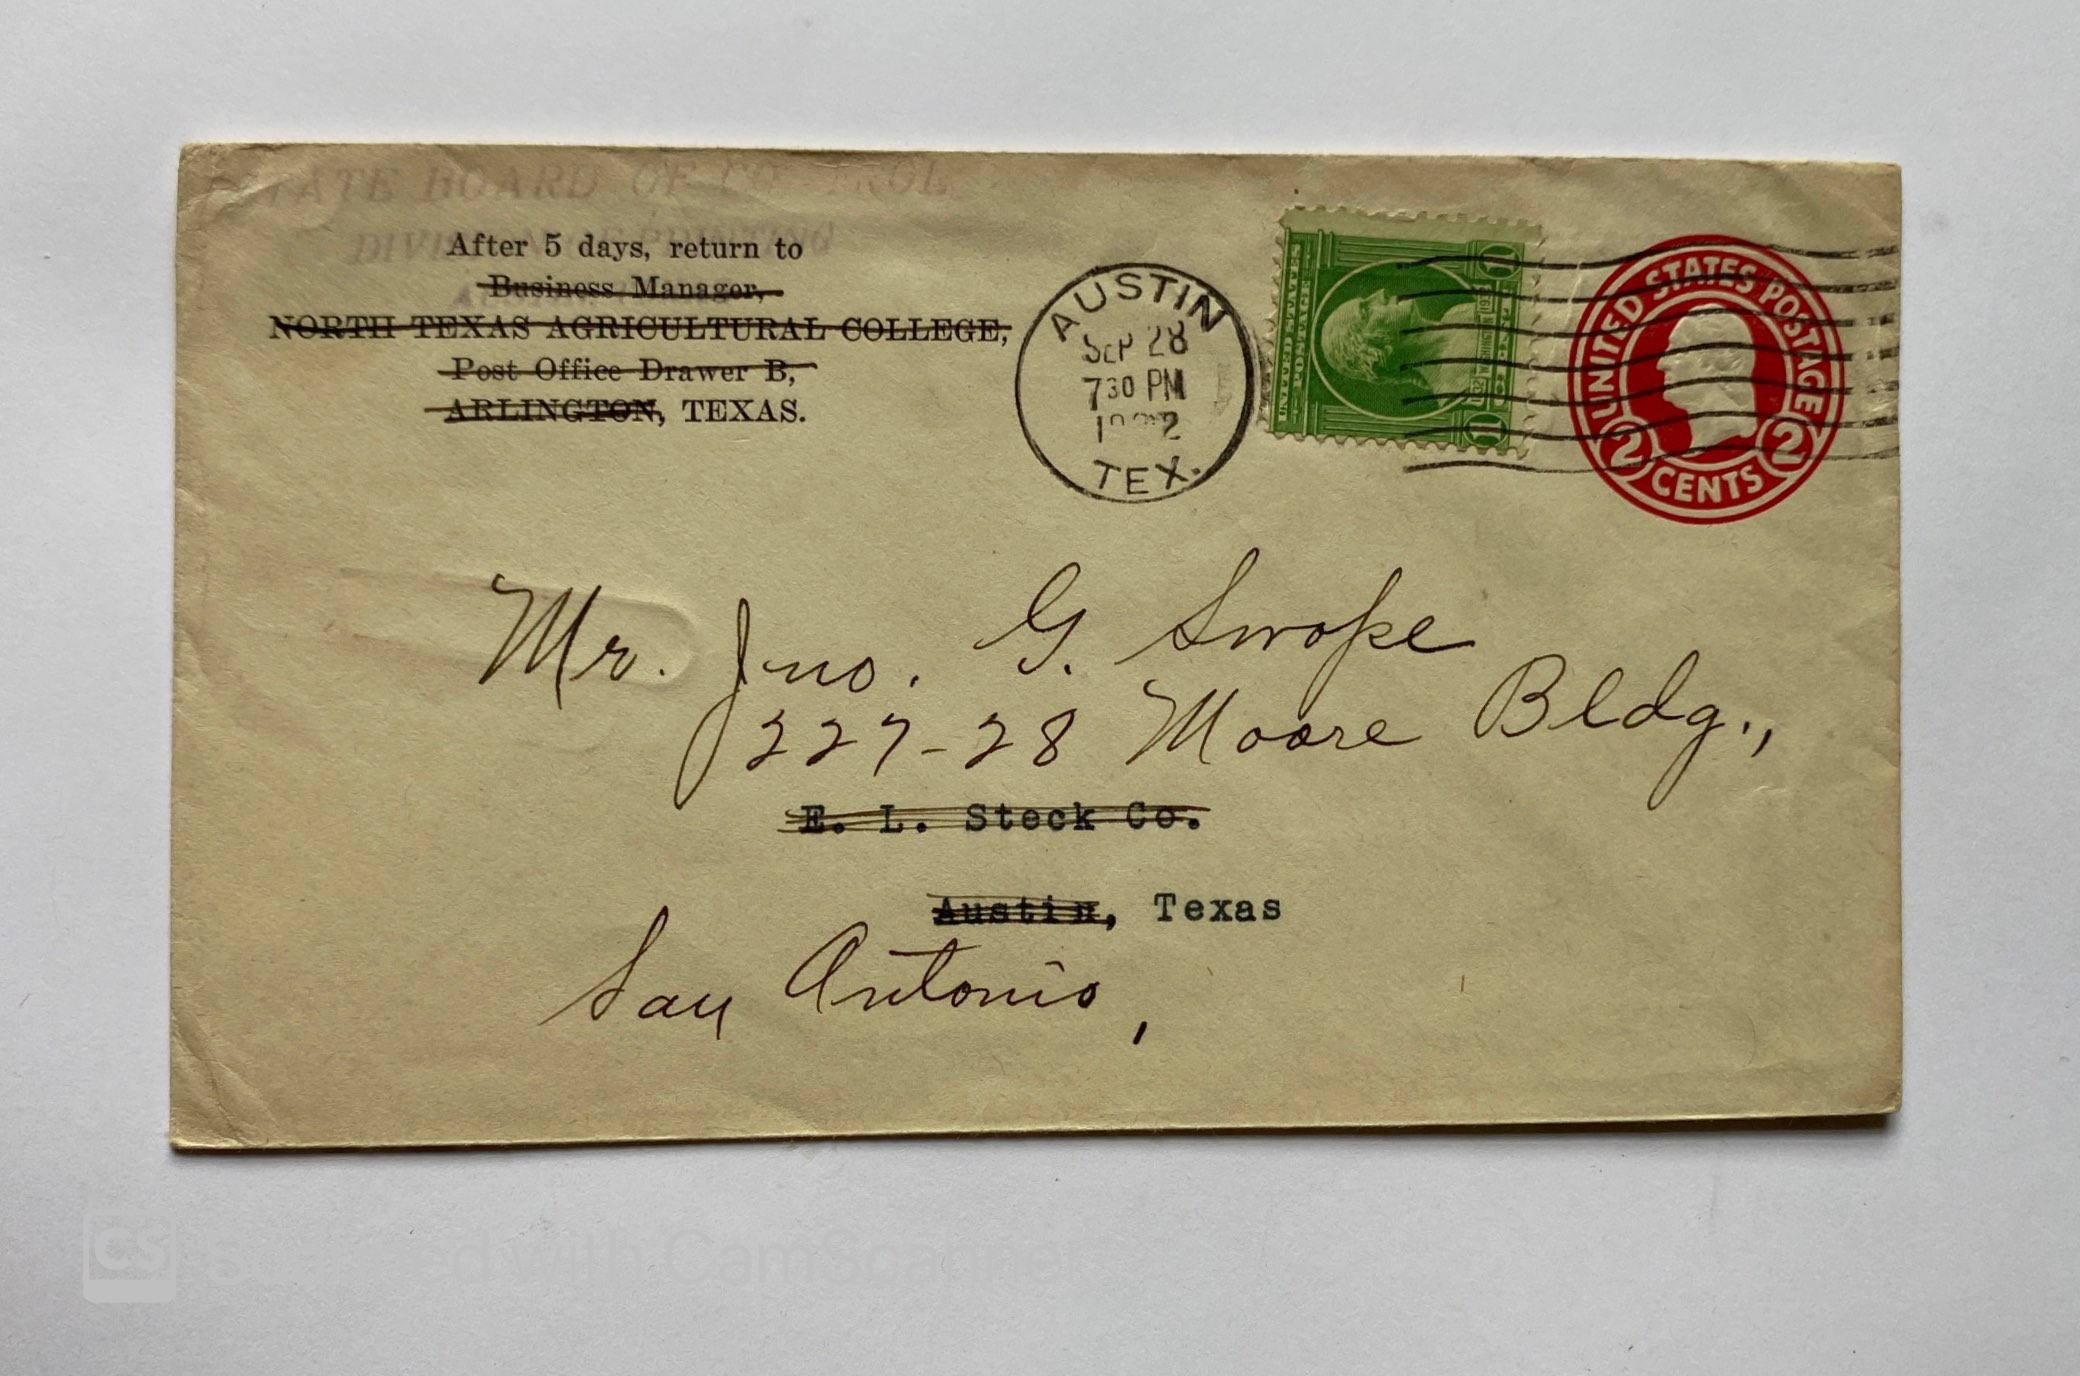 STATE BOARD OF CONTROL
DIVISION OF PRINTING
After 5 days, return to
Business Manager,
NORTH TEXAS AGRICULTURAL COLLEGE,
Post Office Drawer B,
ARLINGTON, TEXAS.
AUSTIN
SEP 28
730 PM
TEX.
UNITED STATES
POSTAGE
1
1
UNITED STATES POSTAGE
2 CENTS 2
Mr. Jno. G. Swope
227-28 Moore Bldg.,
E. L. Steck Co.
Austin, Texas
San Antonio,
CS Scanned with CamScanner